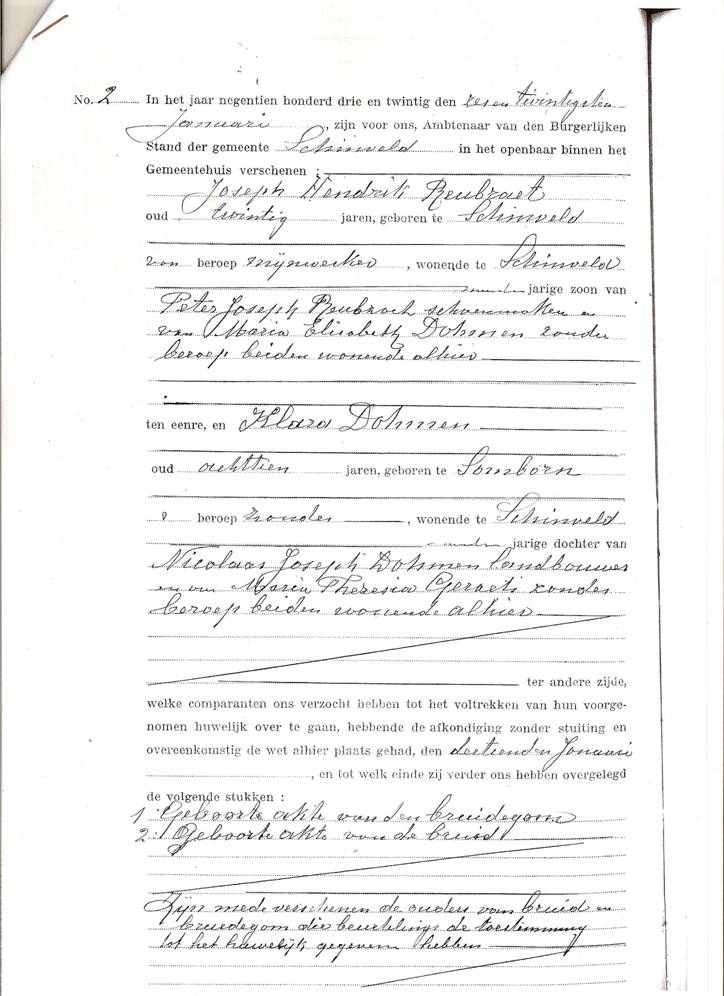 No. 2 In het jaar negentien honderd drie en twintig den zes en twintigsten
Januari, zijn voor ons, Ambtenaar van den Burgerlijken
Stand der gemeente Schinveld in het openbaar binnen het
Gemeentehuis verschenen :
Joseph Hendrik
oud twintig jaren, geboren te Schinveld
van beroep mijnwerker, wonende te Schinveld
jarige zoon van
Peter Joseph schoenmaker en
van Maria Elisabeth Dohmen zonder
beroep beiden wonende alhier
ten eenre, en Klara Dohmen
oud achttien jaren, geboren te Somborn
beroep zonder, wonende te Schinveld
jarige dochter van
Nicolaas Joseph Dohmen landbouwer
en van Maria Theresia Geraets zonder
beroep beiden wonende alhier
ter andere zijde,
welke comparanten ons verzocht hebben tot het voltrekken van hun voorge-
nomen huwelijk over te gaan, hebbende de afkondiging zonder stuiting en
overeenkomstig de wet alhier plaats gehad, den dertienden Januari
, en tot welk einde zij verder ons hebben overgelegd
de volgende stukken :
1: Geboorte akte van den bruidegom
2: Geboorte akte van de bruid
Zijn mede verschenen de ouders van bruid en
bruidegom die beurtelings de toestemming
tot het huwelijk gegeven hebben